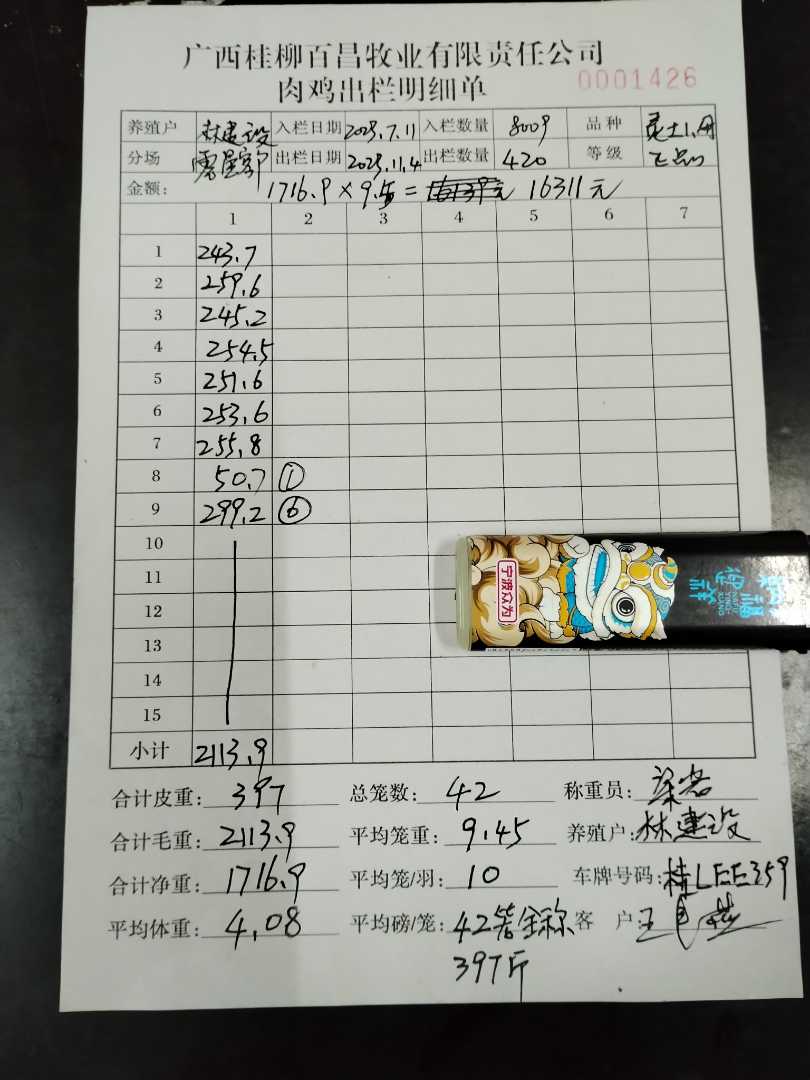 广西桂柳百昌牧业有限责任公司
肉鸡出栏明细单 0001426
养殖户 林建设 入栏日期 2025.7.11 入栏数量 8009 品种
分场 出栏日期 2025.11.4 出栏数量 420 等级 正品
金额: 1716.9×9.5= 16311元
1 2 3 4 5 6 7
1 243.7
2 259.6
3 245.2
4 254.5
5 251.6
6 253.6
7 255.8
8 50.7 ①
9 299.2 ⑥
10
11
12
13
14
15
小计 2113.9
合计皮重: 397 总笼数: 42 称重员:
合计毛重: 2113.9 平均笼重: 9.45 养殖户: 林建设
合计净重: 1716.9 平均笼/羽: 10 车牌号码: 桂LEE359
平均体重: 4.08 平均磅/笼: 42 全称 客 户:
397斤
宁波众为